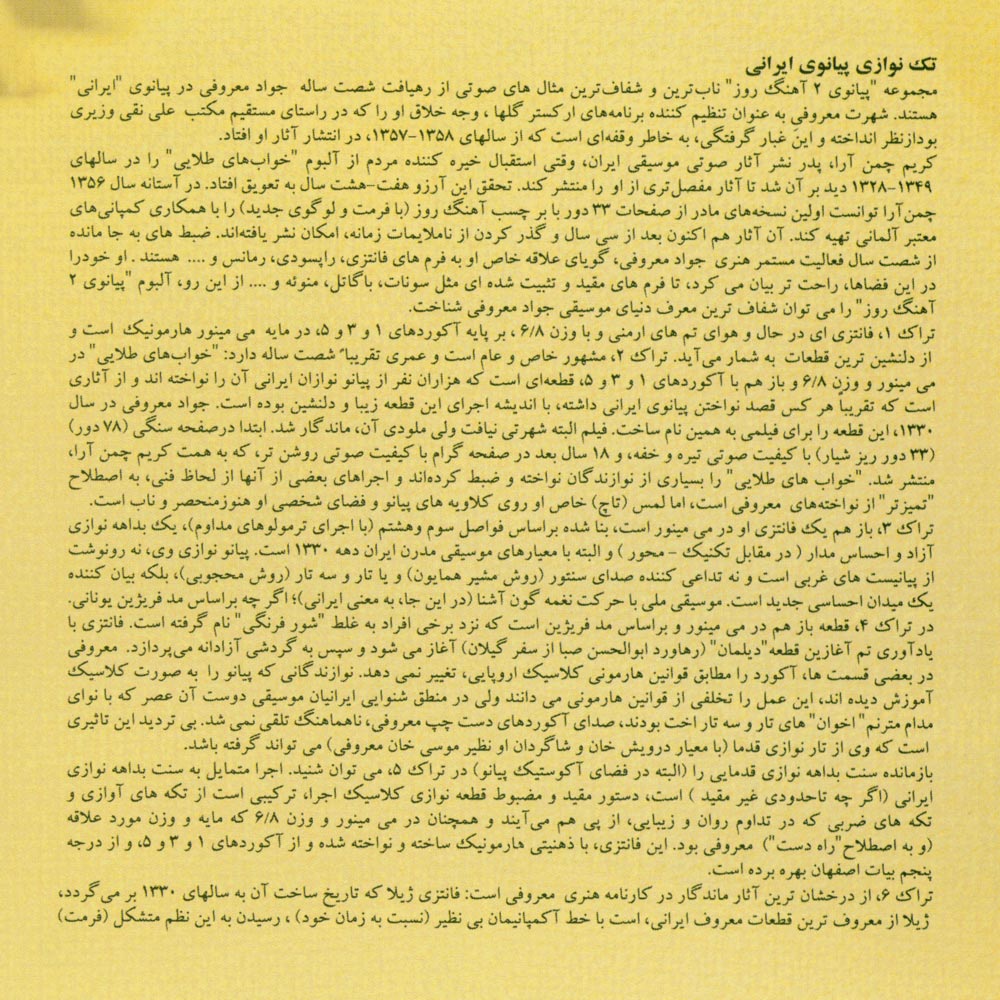 تک نوازی پیانوی ایرانی
مجموعه "پیانوی ۲ آهنگ روز" ناب‌ترین و شفاف‌ترین مثال های صوتی از رهیافت شصت ساله جواد معروفی در پیانوی "ایرانی"
هستند. شهرت معروفی به عنوان تنظیم کننده برنامه‌های ارکستر گلها ، وجه خلاق او را که در راستای مستقیم مکتب علی نقی وزیری
بودازنظر انداخته و این غبار گرفتگی، به خاطر وقفه‌ای است که از سالهای ۱۳۵۸-۱۳۵۷، در انتشار آثار او افتاد.
کریم چمن آرا، پدر نشر آثار صوتی موسیقی ایران، وقتی استقبال خیره کننده مردم از آلبوم "خواب‌های طلایی" را در سالهای
۱۳۴۹-۱۳۲۸ دید بر آن شد تا آثار مفصل‌تری از او را منتشر کند. تحقق این آرزو هفت-هشت سال به تعویق افتاد. در آستانه سال ۱۳۵۶
چمن‌آرا توانست اولین نسخه‌های مادر از صفحات ۳۳ دور با بر چسب آهنگ روز (با فرمت و لوگوی جدید) را با همکاری کمپانی‌های
معتبر آلمانی تهیه کند. آن آثار هم اکنون بعد از سی سال و گذر کردن از ناملایمات زمانه، امکان نشر یافته‌اند. ضبط های به جا مانده
از شصت سال فعالیت مستمر هنری جواد معروفی، گویای علاقه خاص او به فرم های فانتزی، راپسودی، رمانس و .... هستند . او خودرا
در این فضاها، راحت تر بیان می کرد، تا فرم های مقید و تثبیت شده ای مثل سونات، باگاتل، منوئه و .... از این رو، آلبوم "پیانوی ۲
آهنگ روز" را می توان شفاف ترین معرف دنیای موسیقی جواد معروفی شناخت.
تراک ۱، فانتزی ای در حال و هوای تم های ارمنی و با وزن ۶/۸ ، بر پایه آکوردهای ۱ و ۳ و ۵، در مایه می مینور هارمونیک است و
از دلنشین ترین قطعات به شمار می‌آید. تراک ۲، مشهور خاص و عام است و عمری تقریباً شصت ساله دارد: "خواب‌های طلایی" در
می مینور و وزن ۶/۸ و باز هم با آکوردهای ۱ و ۳ و ۵، قطعه‌ای است که هزاران نفر از پیانو نوازان ایرانی آن را نواخته اند و از آثاری
است که تقریبا هر کس قصد نواختن پیانوی ایرانی داشته، با اندیشه اجرای این قطعه زیبا و دلنشین بوده است. جواد معروفی در سال
۱۳۳۰، این قطعه را برای فیلمی به همین نام ساخت. فیلم البته شهرتی نیافت ولی ملودی آن، ماندگار شد. ابتدا درصفحه سنگی (۷۸ دور)
(۳۳ دور ریز شیار) با کیفیت صوتی تیره و خفه، و ۱۸ سال بعد در صفحه گرام با کیفیت صوتی روشن تر، که به همت کریم چمن آرا،
منتشر شد. "خواب های طلایی" را بسیاری از نوازندگان نواخته و ضبط کرده‌اند و اجراهای بعضی از آنها از لحاظ فنی، به اصطلاح
"تمیزتر" از نواخته‌های معروفی است، اما لمس (تاچ) خاص او روی کلاویه های پیانو و فضای شخصی او هنوزمنحصر و ناب است.
تراک ۳، باز هم یک فانتزی او در می مینور است، بنا شده براساس فواصل سوم وهشتم (با اجرای ترمولوهای مداوم)، یک بداهه نوازی
آزاد و احساس مدار ( در مقابل تکنیک - محور ) و البته با معیارهای موسیقی مدرن ایران دهه ۱۳۳۰ است. پیانو نوازی وی، نه رونوشت
از پیانیست های غربی است و نه تداعی کننده صدای سنتور (روش مشیر همایون) و یا تار و سه تار (روش محجوبی)، بلکه بیان کننده
یک میدان احساسی جدید است. موسیقی ملی با حرکت نغمه گون آشنا (در این جا، به معنی ایرانی)؛ اگر چه براساس مد فریژین یونانی.
در تراک ۴، قطعه باز هم در می مینور و براساس مد فریژین است که نزد برخی افراد به غلط "شور فرنگی" نام گرفته است. فانتزی با
یادآوری تم آغازین قطعه"دیلمان" (رهاورد ابوالحسن صبا از سفر گیلان) آغاز می شود و سپس به گردشی آزادانه می‌پردازد. معروفی
در بعضی قسمت ها، آکورد را مطابق قوانین هارمونی کلاسیک اروپایی، تغییر نمی دهد. نوازندگانی که پیانو را به صورت کلاسیک
آموزش دیده اند، این عمل را تخلفی از قوانین هارمونی می دانند ولی در منطق شنوایی ایرانیان موسیقی دوست آن عصر که با نوای
مدام مترنم" اخوان" های تار و سه تار اخت بودند، صدای آکوردهای دست چپ معروفی، ناهماهنگ تلقی نمی شد. بی تردید این تاثیری
است که وی از تار نوازی قدما (با معیار درویش خان و شاگردان او نظیر موسی خان معروفی) می تواند گرفته باشد.
بازمانده سنت بداهه نوازی قدمایی را (البته در فضای آکوستیک پیانو) در تراک ۵، می توان شنید. اجرا متمایل به سنت بداهه نوازی
ایرانی (اگر چه تاحدودی غیر مقید ) است، دستور مقید و مضبوط قطعه نوازی کلاسیک اجرا، ترکیبی است از تکه های آوازی و
تکه های ضربی که در تداوم روان و زیبایی، از پی هم می‌آیند و همچنان در می مینور و وزن ۶/۸ که مایه و وزن مورد علاقه
(و به اصطلاح"راه دست") معروفی بود. این فانتزی، با ذهنیتی هارمونیک ساخته و نواخته شده و از آکوردهای ۱ و ۳ و ۵، و از درجه
پنجم بیات اصفهان بهره برده است.
تراک ۶، از درخشان ترین آثار ماندگار در کارنامه هنری معروفی است: فانتزی ژیلا که تاریخ ساخت آن به سالهای ۱۳۳۰ بر می‌گردد،
ژیلا از معروف ترین قطعات معروف ایرانی، است با خط آکمپانیمان بی نظیر (نسبت به زمان خود) ، رسیدن به این نظم متشکل (فرمت)